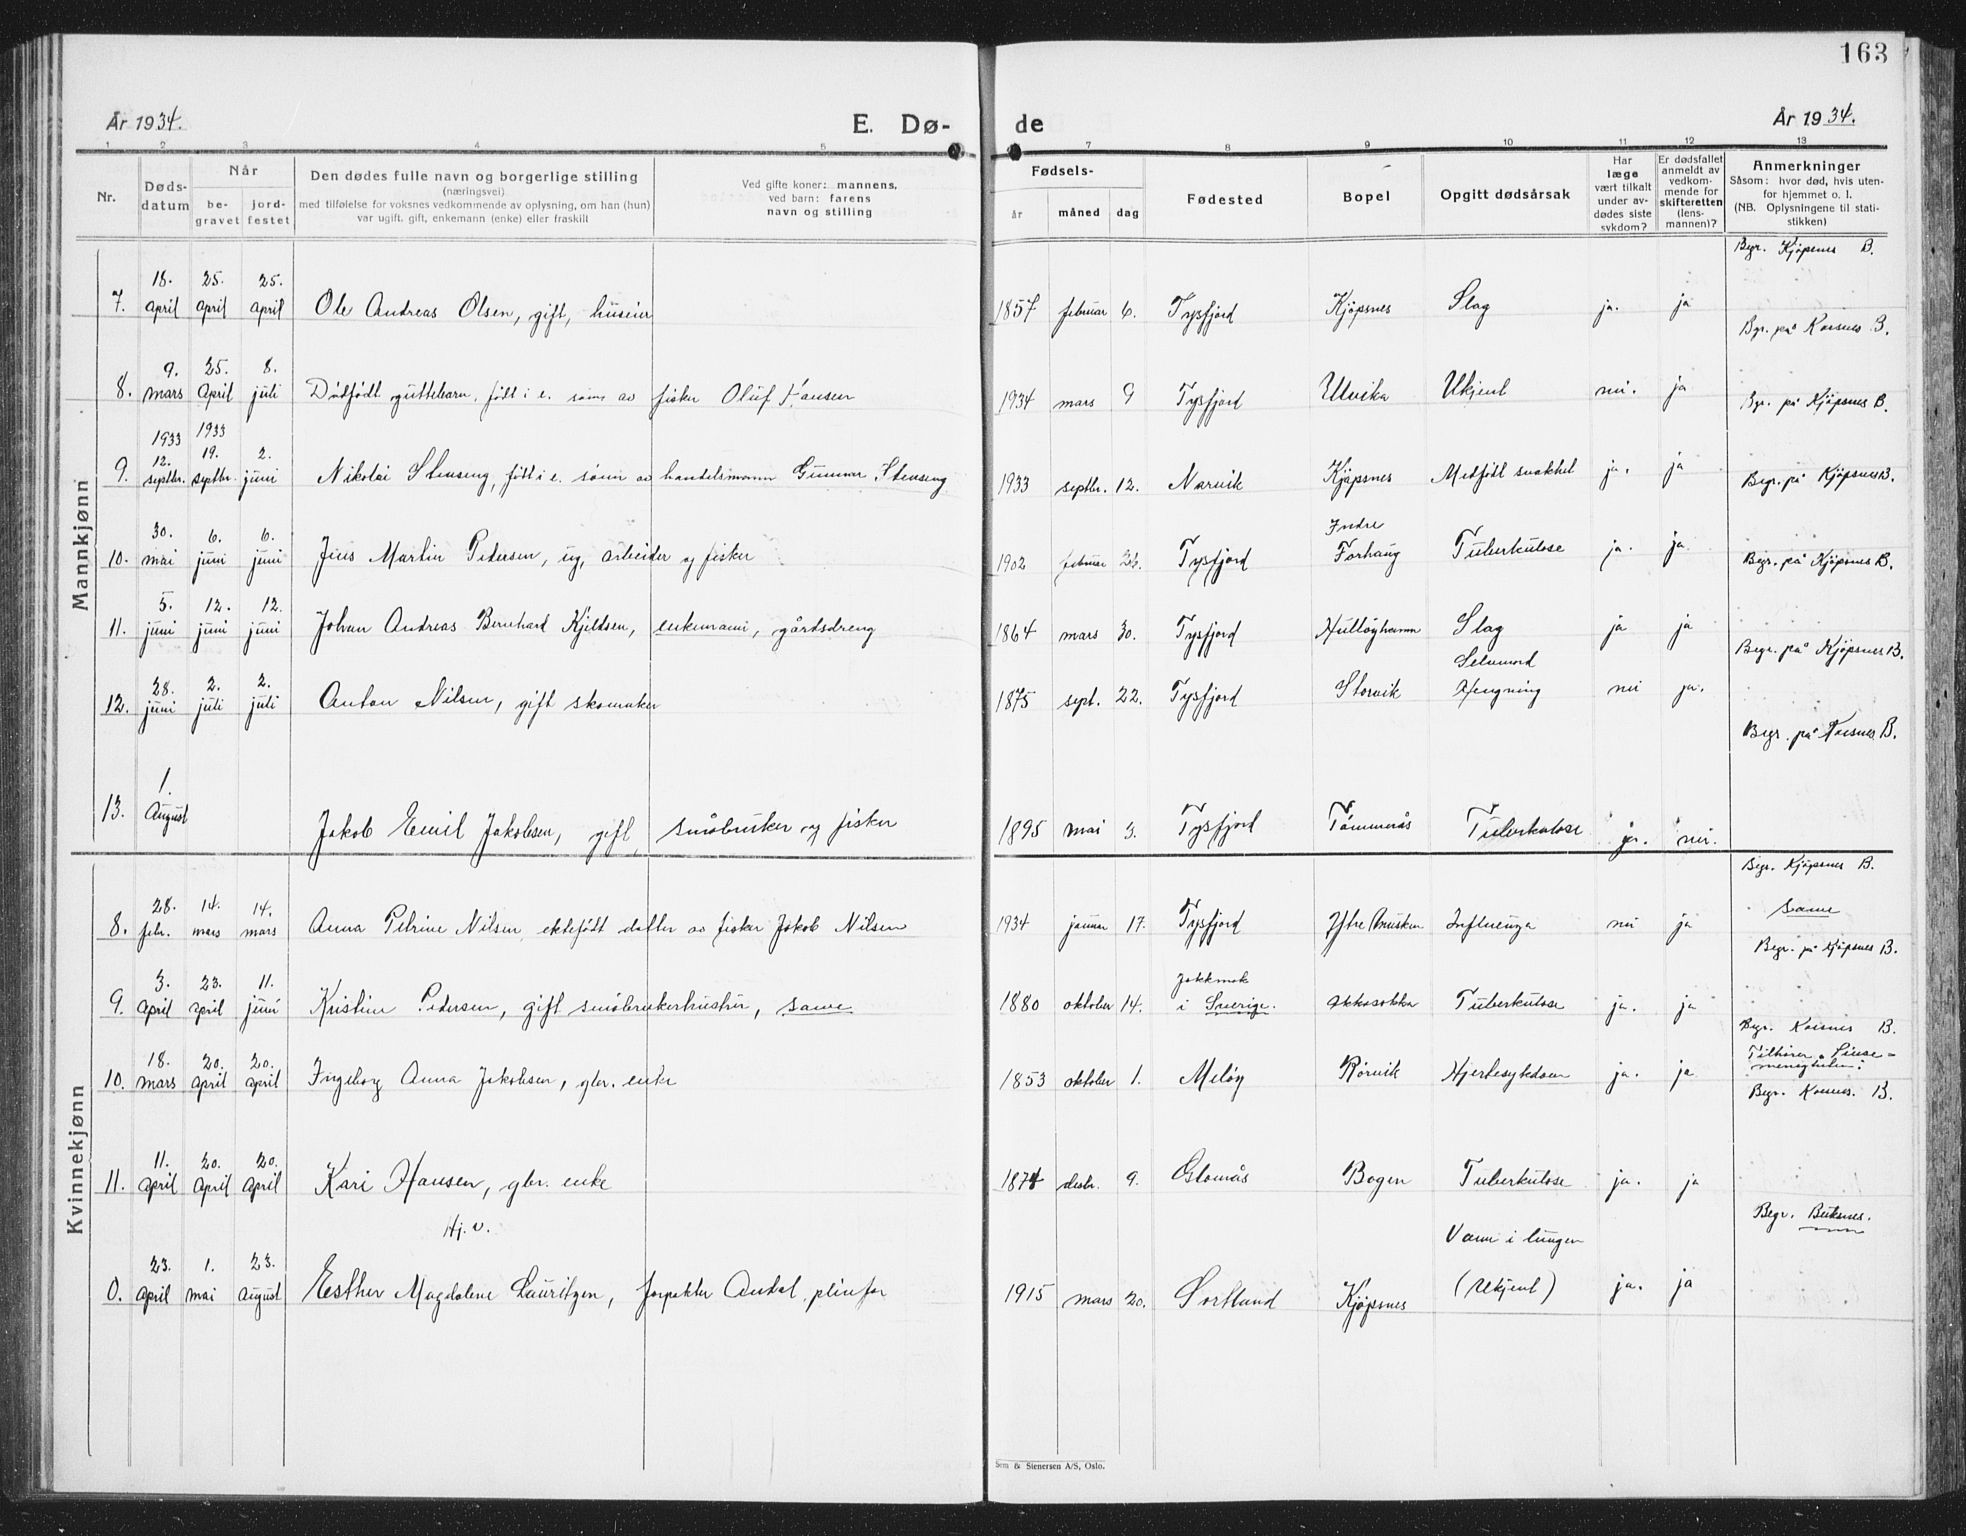 163
År 1934.
E. Dø-
de
År 1934.
1 2 3 4 5 7 8 9 10 11 12 13
Nr.
Døds-
datum
Når
be-
gravet
jord-
festet
Den dødes fulle navn og borgerlige stilling
(næringsvei)
med tilføielse for voksnes vedkommende av oplysning, om han (hun)
var ugift, gift, enkemann (enke) eller fraskill
Ved gifte koner: mannens,
ved barn: farens
navn og stilling
Fødsels-
år måned dag
Fødested
Bopel
Opgitt dødsårsak
Har
læge
vært tilkalt
under av-
dødes siste
sykdom?
Er dødsfallet
anmeldt av
vedkom-
mende for
skifteretten
(lens-
mannen)?
Anmerkninger
Såsom: hvor død, hvis uten-
for hjemmet o. l.
(NB. Oplysningene til stati-
stikken)
Mannkjønn
Begr. Kjøpsnes B.
7. 18. april 25. april 25. april Ole Andreas Olsen, gift, huseier 1857 februar 6. Tysfjord Kjøpsnes Slag ja. ja
Bgr. på Korsnes B.
8. 9. mars 25. april 8. juli Dødfødt guttebarn, født i e. sønn av fisker Oluf Hansen 1934 mars 9 Tysfjord Ulvika Ukjent nei. ja
Bgr. på Kjöpsnes B.
9. 1933 12. septbr. 1933 19. septbr. 2. juni Nikolai Stenseng, født i e. sønn av handelsmann Gunnar Stenseng 1933 septbr. 12. Narvik Kjøpsnes Medfödt svakhet ja. ja
Begr. på Kjöpsnes B.
10. 30. mai 6. juni 6. juni Jens Martin Pedersen, ug, arbeider og fisker 1902 februar Tysfjord Indre Forhaug Tuberkulose ja. ja.
Begr. på Kjöpsnes B.
11. 5. juni 12. juni 12. juni Johan Andreas Bernhard Kjeldsen, enkemann, gårdsdreng 1864 mars 30. Tysfjord Hulløyhamn Slag ja ja
Begr. på Kjöpsnes B.
12. 28. juni 2. juli 2. juli Anton Nilsen, gift skomaker 1875 sept. 22. Tysfjord Storvik Selvmord Hengning nei ja.
Begr. på Korsnes B.
13. 1. August Jakob Emil Jakobsen, gift, småbruker og fisker 1895 mai 3. Tysfjord Tømmerås Tuberkulose ja. nei.
Kvinnekjønn
Begr. Kjöpsnes B.
8. 28. febr. 14. mars 14. mars Anna Petrine Nilsen, ektefødt datter av fisker Jakob Nilsen 1934 januar 17. Tysfjord Ytre Musken Influenza nei ja same
Begr. på Kjöpsnes B.
9. 3. april 23. april 11. juni Kristine Pedersen, gift småbrukerhustru, same 1880 oktober 14. Jokkmok i Sverige. Tuberkulose ja. ja
Begr. Korsnes B.
10. 18. mars 20. april 20. april Ingeborg Anna Jakobsen, gbr. enke 1853 oktober 1. Meløy Rørvik Hjertesykdom ja. ja Tilhörer
Begr. Korsnes. B.
11. 11. april 20. april 20. april Kari Hansen, gbr. enke 1874 desbr. 9. Glomås Bogen Tuberkulose ja. ja
Hj. v.
Begr. Buksnes.
0. 23. april 1. mai 23. august Esther Magdalene Lauritzen, forpakter 1915 mars 20. Sortland Kjøpsnes Vann i lungen (Ukjent) ja. ja
Sem & Stenersen A/S, Oslo.